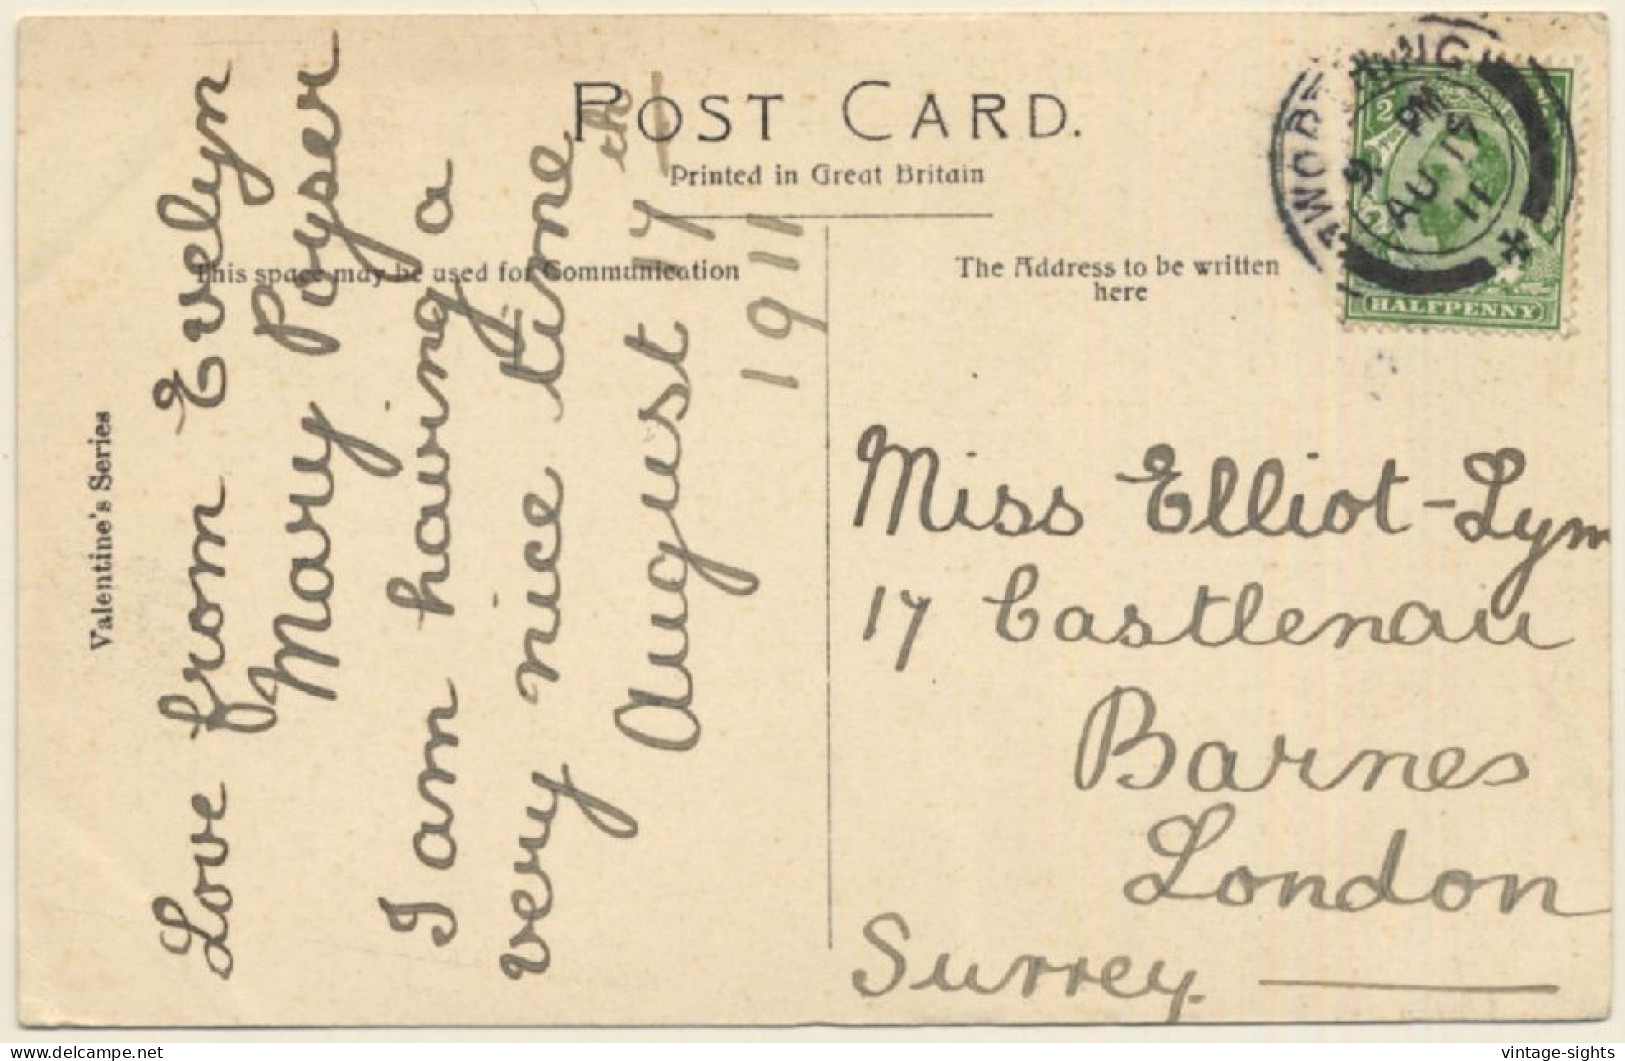 POST CARD.
Printed in Great Britain
This space may be used for Communication
The Address to be written
here
Valentine's Series
Love from Evelyn
Mary Poyser
I am having a
very nice time
August 17th
1911
Miss Elliot-Lym
17 Castlenau
Barnes
London
Surrey.
9 PM
AU 17
11
HALFPENNY
vintage-sights